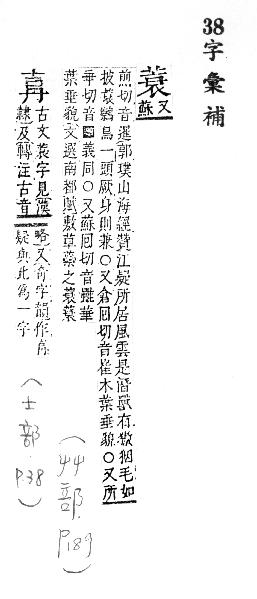 38 字彙補
蓑 又蘇
煎切音暹郭璞山海經贊江疑所居風雲是潛獸有傲 毛如
披蓑鵄鳥一頭厥身則兼○又倉回切音崔木葉垂貌○又所
爭切音 義同○又蘇回切音雖華
葉垂貌文選南都賦敷草蘂之蓑蓑
古文蓑字見漢
隸及轉注古音
略又奇字韻作
疑與此為一字
(艸部 P.189)
(士部 P.38)